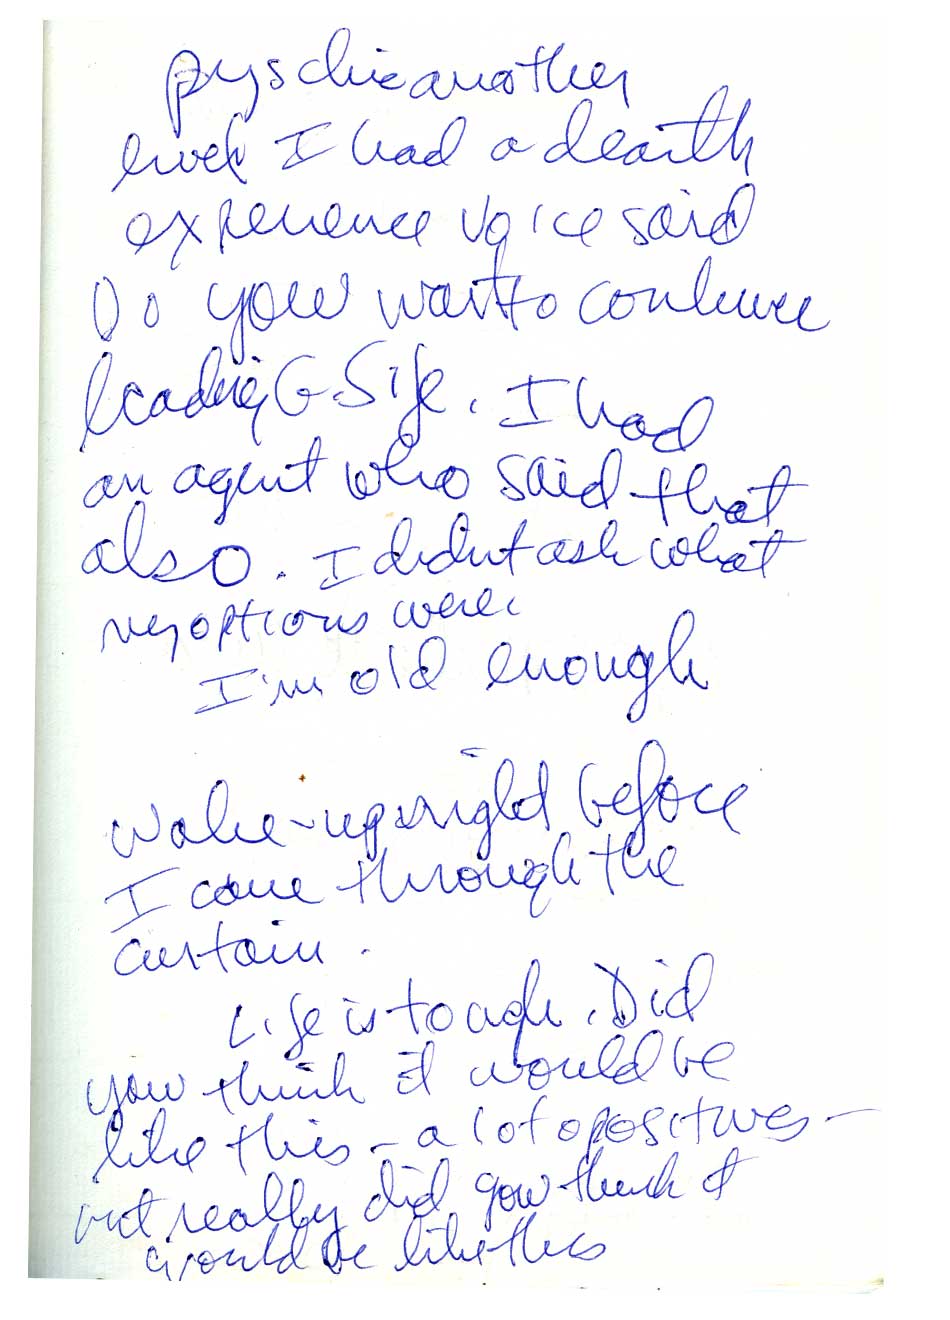 pyschic another
level I had a death
experience voice said
Do you want to continue
leading G. Life. I had
an agent who said that
also. I didnt ask what
my options were.
I'm old enough
Wake-up right before
I come through the
curtain.
Life is tough. Did
you think it would be
like this - a lot of positives -
but really did you think it
would be like this